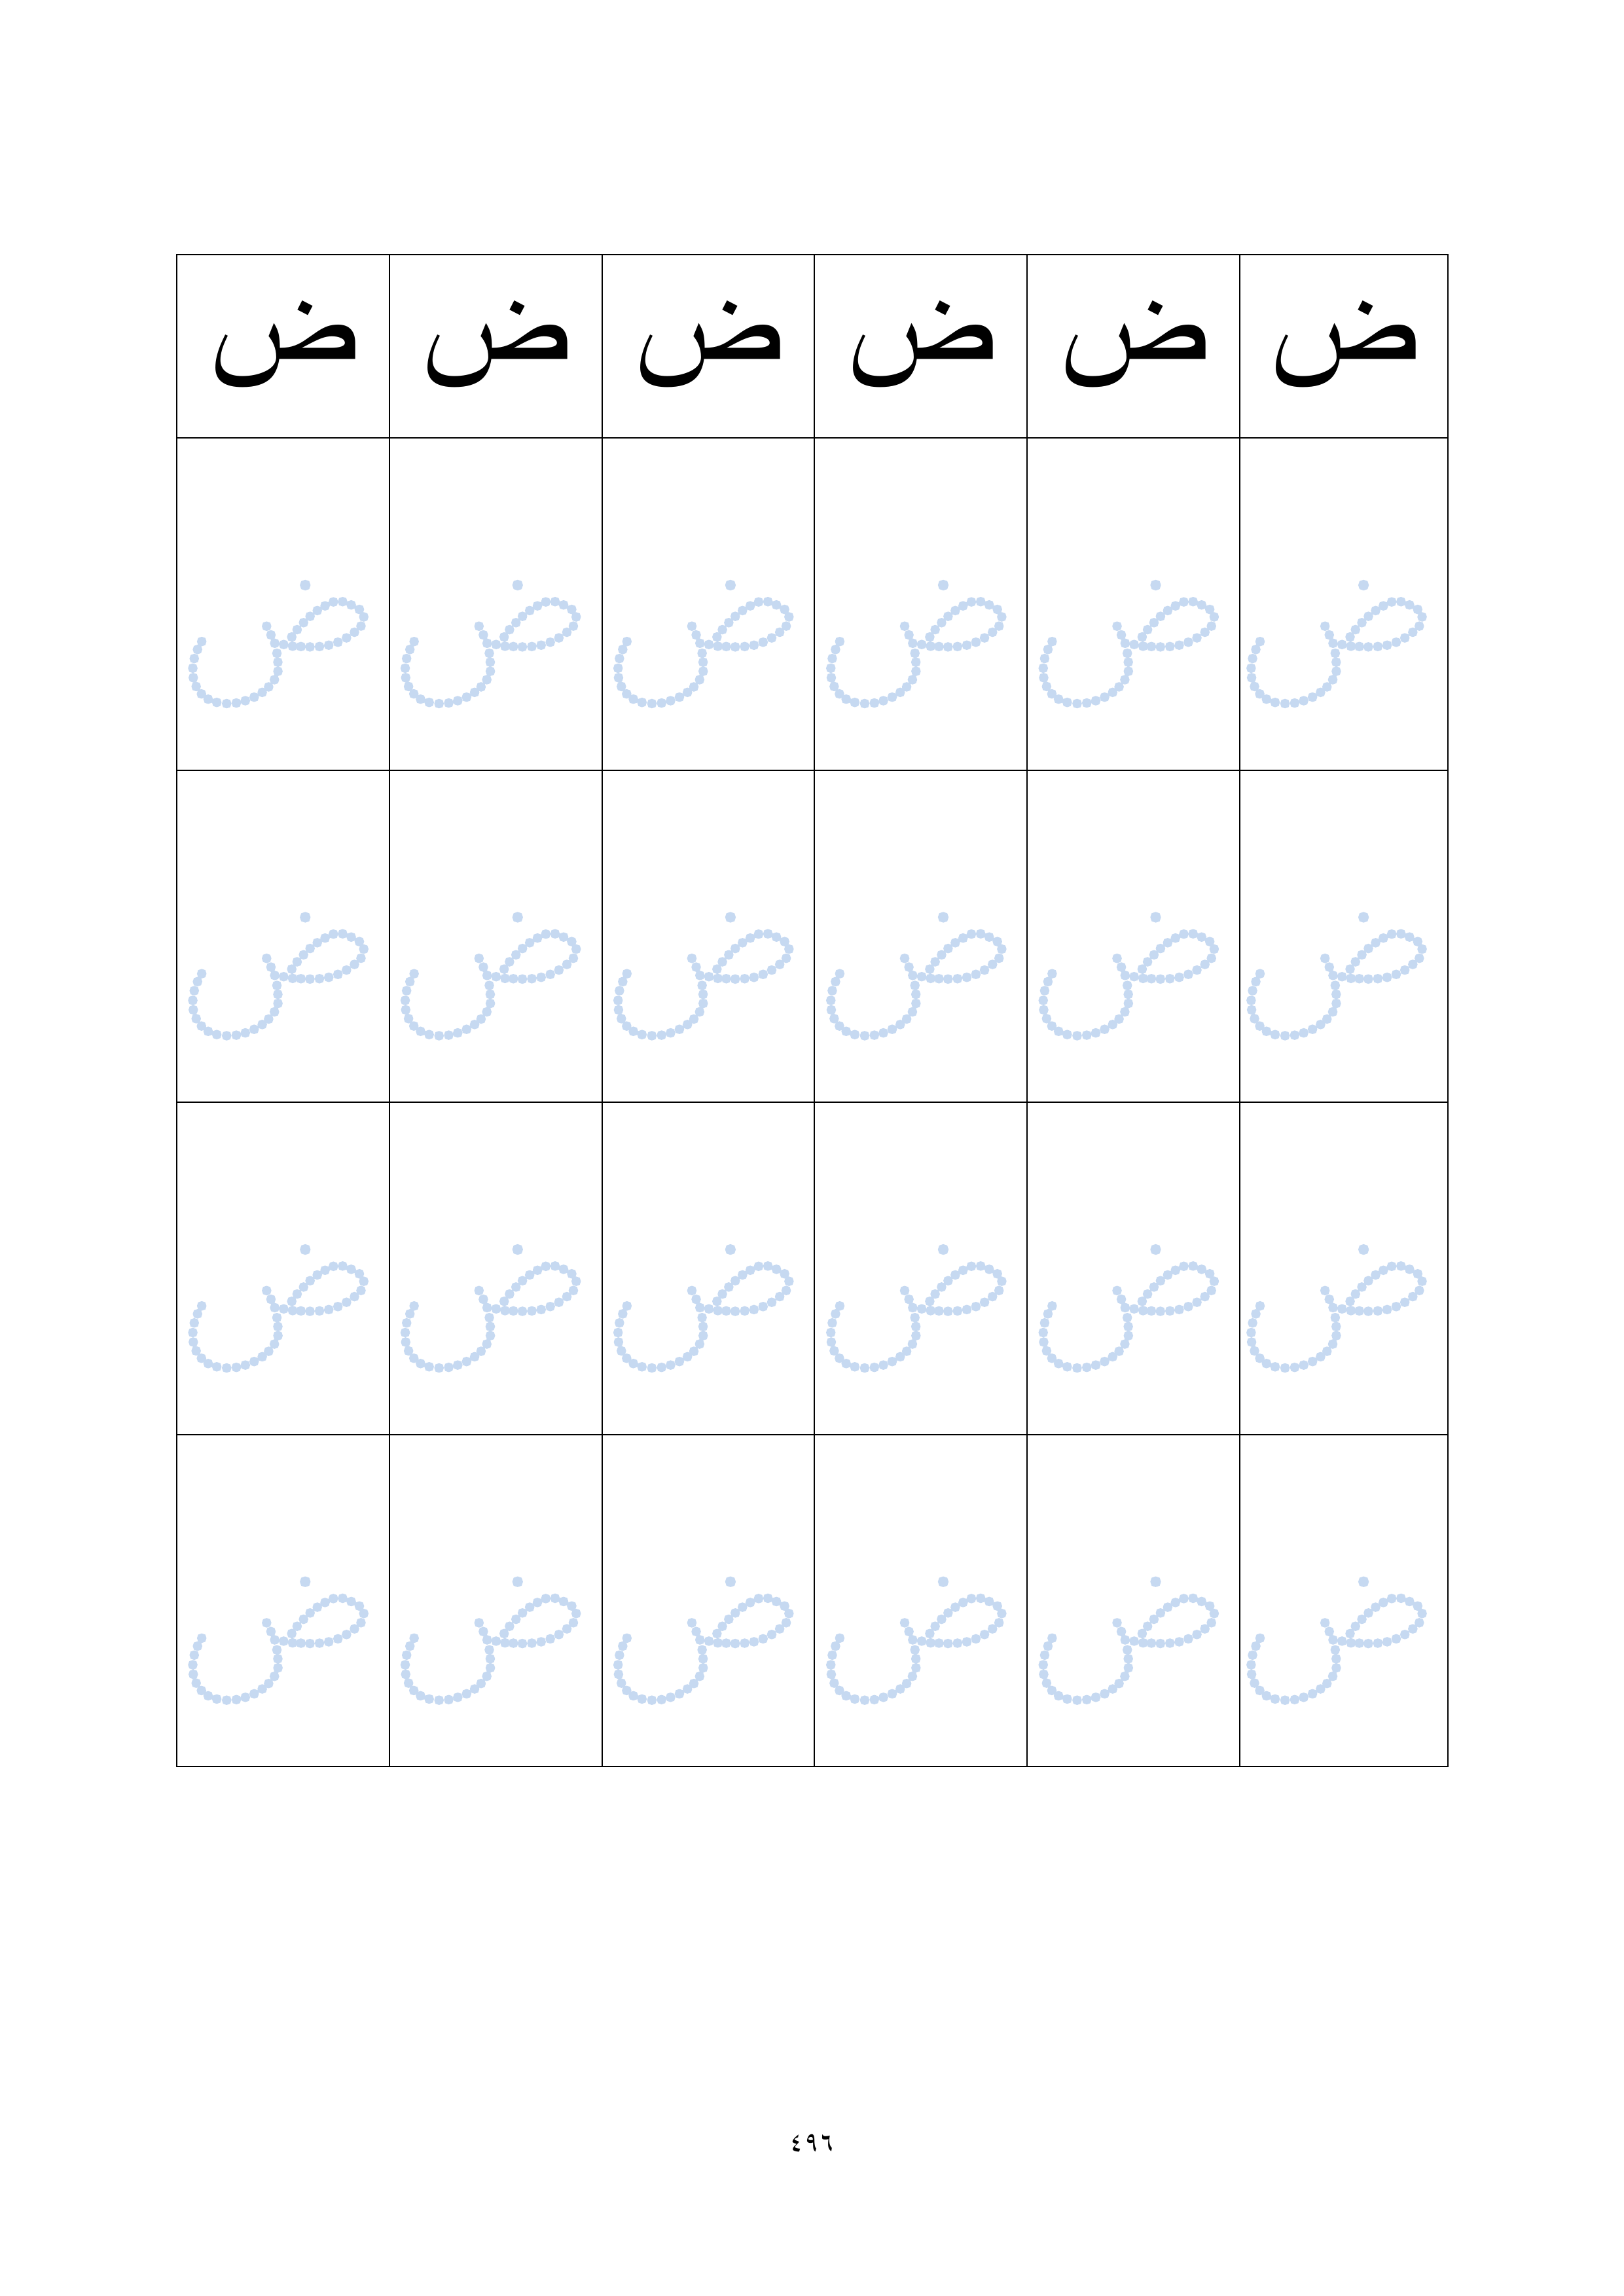 ض ض ض ض ض ض
ض ض ض ض ض ض
ض ض ض ض ض ض
ض ض ض ض ض ض
ض ض ض ض ض ض
٤٩٦